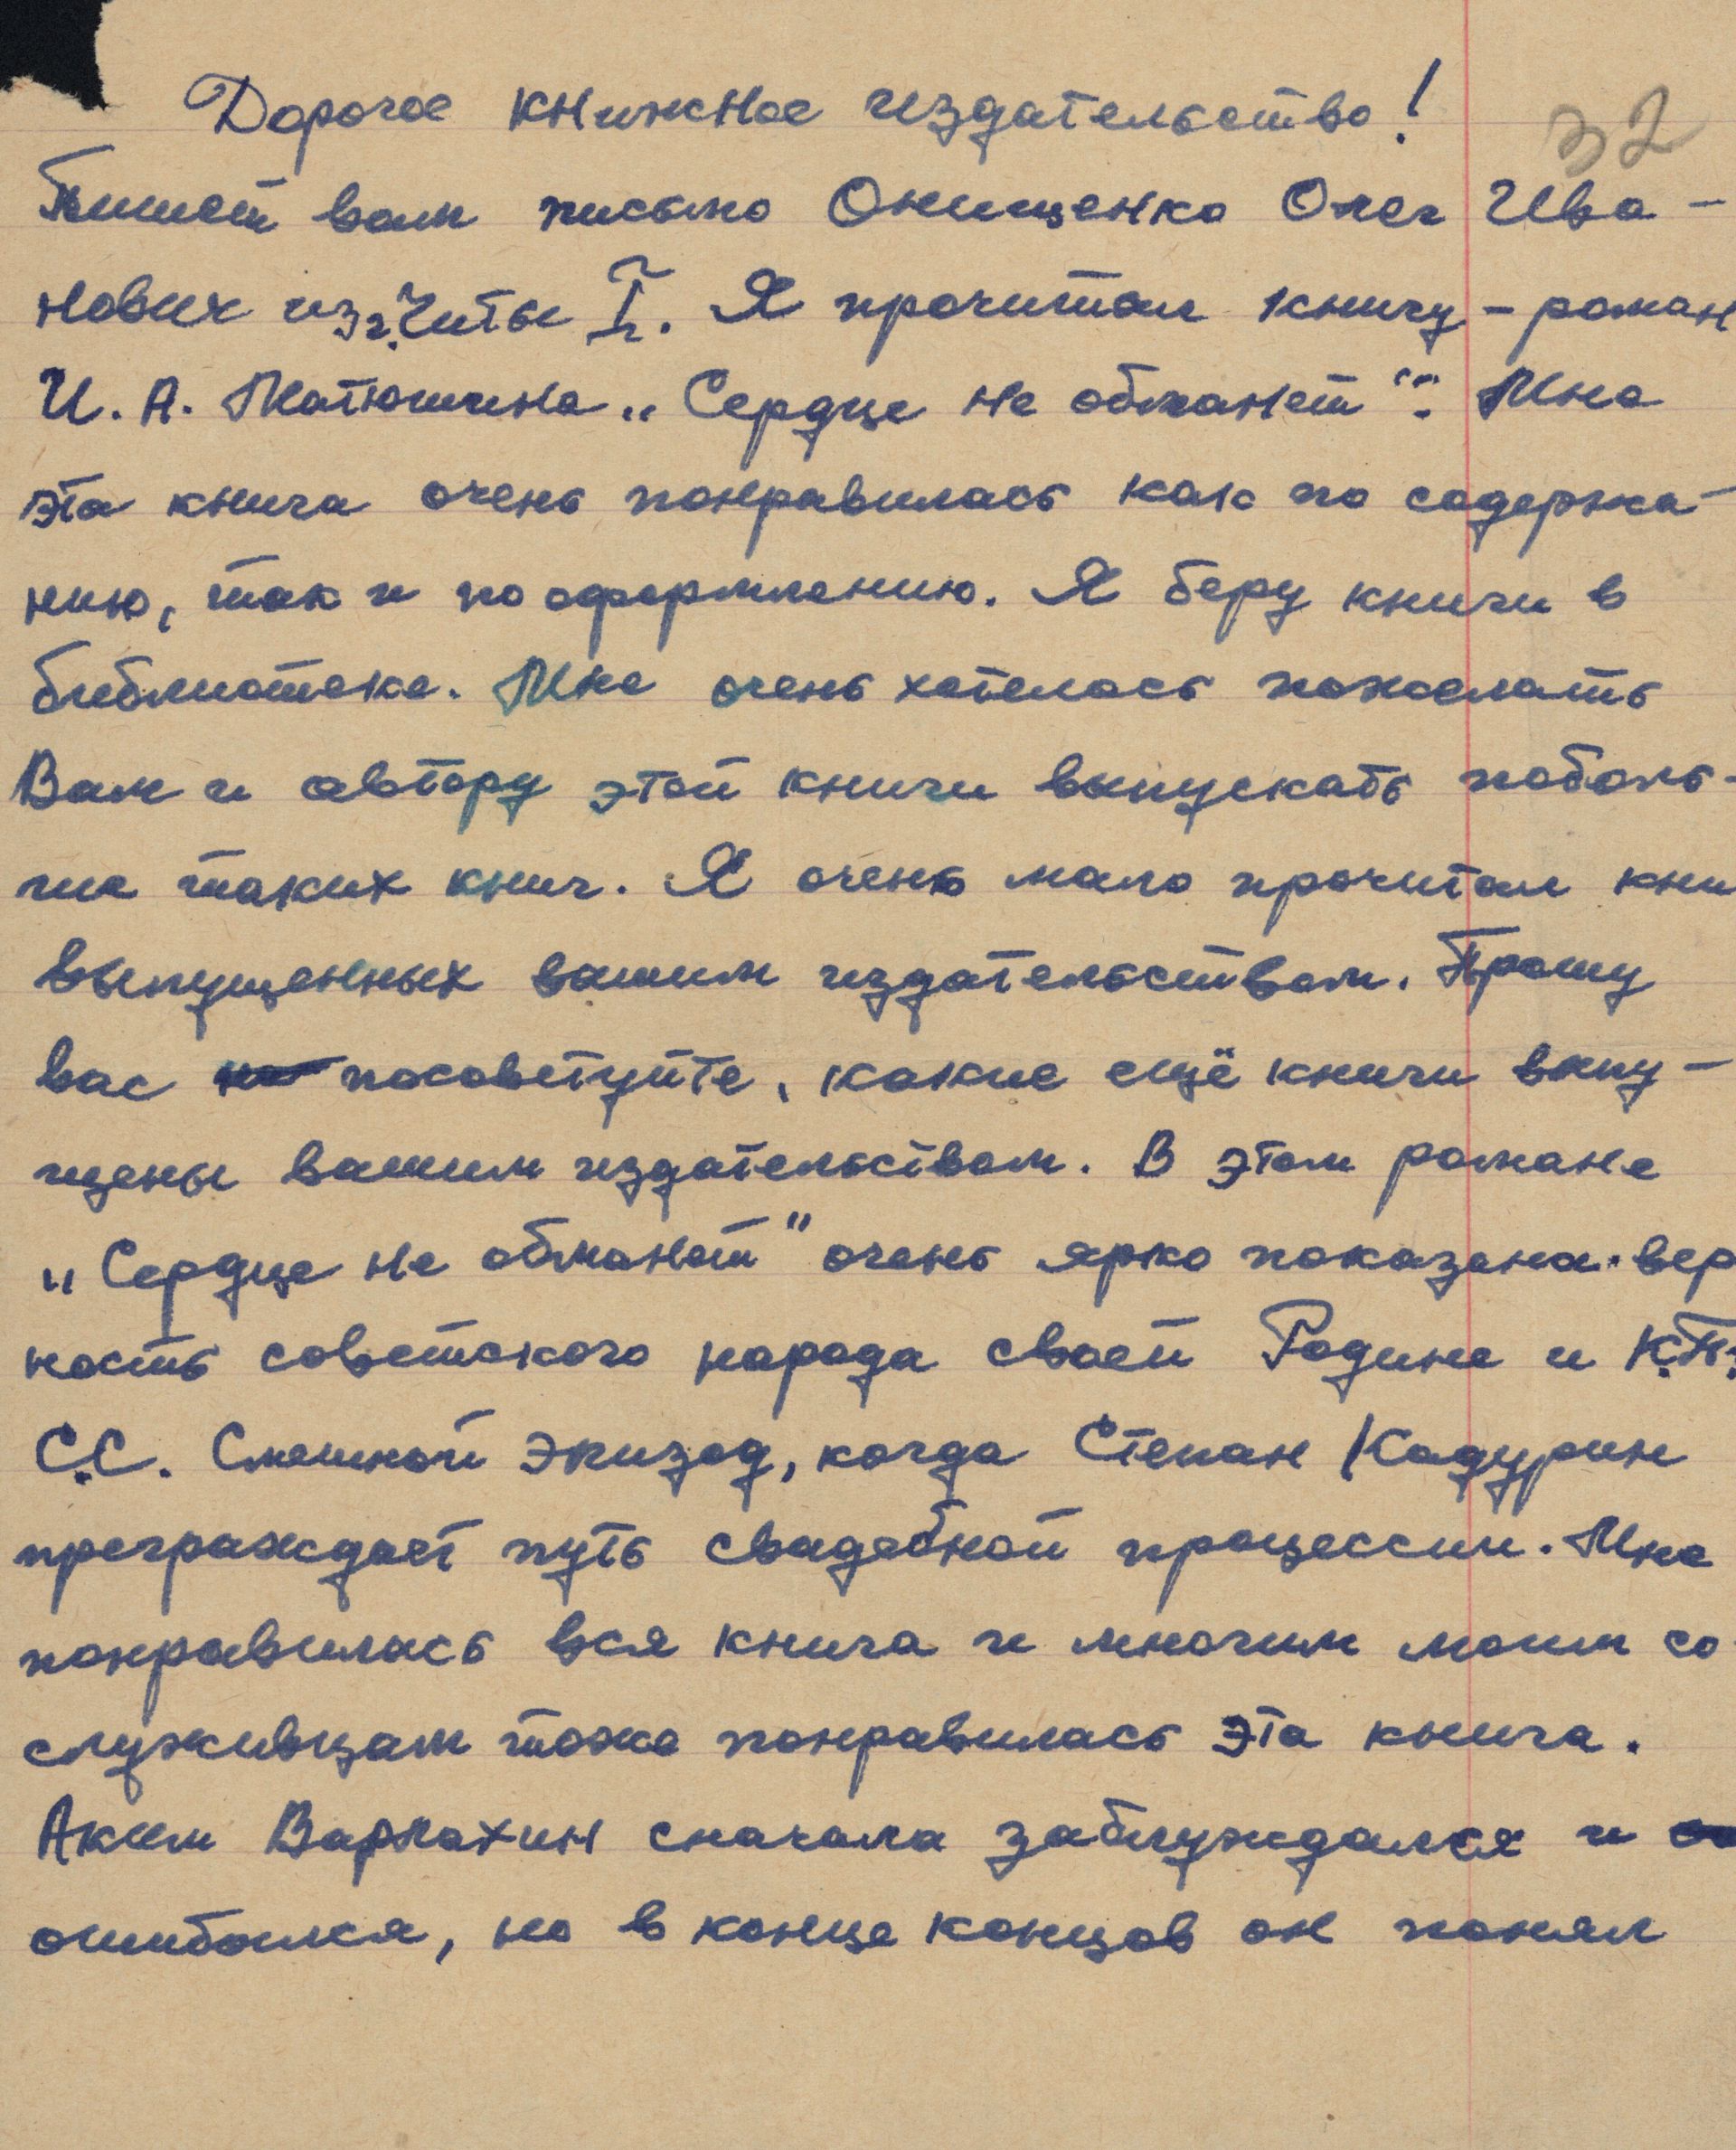 32
Дорогое книжное издательство!
Пишет вам письмо Онищенко Олег Ива-
нович из г. Читы I. Я прочитал книгу - роман
И. А. Матюшина „Сердце не обманет“. Мне
эта книга очень понравилась как по содержа-
нию, так и по оформлению. Я беру книги в
библиотеке. Мне очень хотелось пожелать
Вам и автору этой книги выпускать поболь-
ше таких книг. Я очень мало прочитал кни
выпущенных вашим издательством. Прошу
вас посоветуйте, какие ещё книги выпу-
щены вашим издательством. В этом романе
„Сердце не обманет“ очень ярко показана вер
ность советского народа своей Родине и К.П.
С.С. Смешной эпизод, когда Степан Кадурин
преграждает путь свадебной процессии. Мне
понравилась вся книга и многим моим со
служивцам тоже понравилась эта книга.
Аким Варлахин сначала заблуждался и
ошибался, но в конце концов он понял